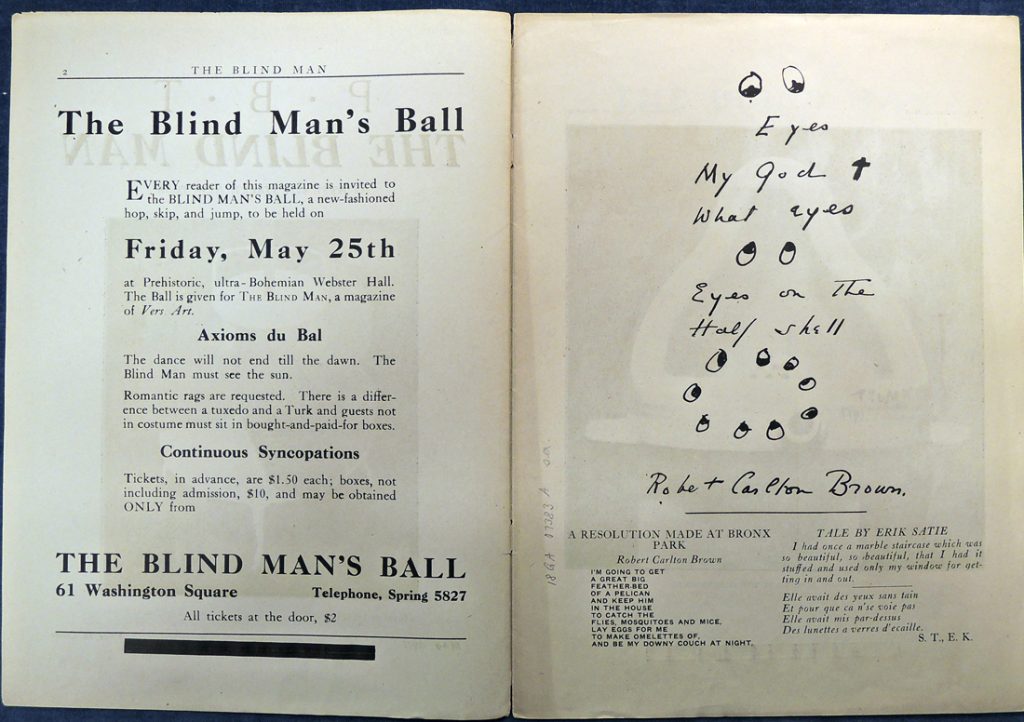 2
THE BLIND MAN
The Blind Man's Ball
EVERY reader of this magazine is invited to
the BLIND MAN'S BALL, a new-fashioned
hop, skip, and jump, to be held on
Friday, May 25th
at Prehistoric, ultra-Bohemian Webster Hall.
The Ball is given for THE BLIND MAN, a magazine
of Vers Art.
Axioms du Bal
The dance will not end till the dawn. The
Blind Man must see the sun.
Romantic rags are requested. There is a differ-
ence between a tuxedo and a Turk and guests not
in costume must sit in bought-and-paid-for boxes.
Continuous Syncopations
Tickets, in advance, are $1.50 each; boxes, not
including admission, $10, and may be obtained
ONLY from
THE BLIND MAN'S BALL
61 Washington Square Telephone, Spring 5827
All tickets at the door, $2
Eyes
My God
What eyes
Eyes on the
Half shell
Robert Carlton Brown.
A RESOLUTION MADE AT BRONX
PARK
Robert Carlton Brown
I'M GOING TO GET
A GREAT BIG
FEATHER-BED
OF A PELICAN
AND KEEP HIM
IN THE HOUSE
TO CATCH THE
FLIES, MOSQUITOES AND MICE,
LAY EGGS FOR ME
TO MAKE OMELETTES OF,
AND BE MY DOWNY COUCH AT NIGHT.
TALE BY ERIK SATIE
I had once a marble staircase which was
so beautiful, so beautiful, that I had it
stuffed and used only my window for get-
ting in and out.
Elle avait des yeux sans tain
Et pour que ca n'se voie pas
Elle avait mis par-dessus
Des lunettes a verres d'ecaille.
S. T., E. K.